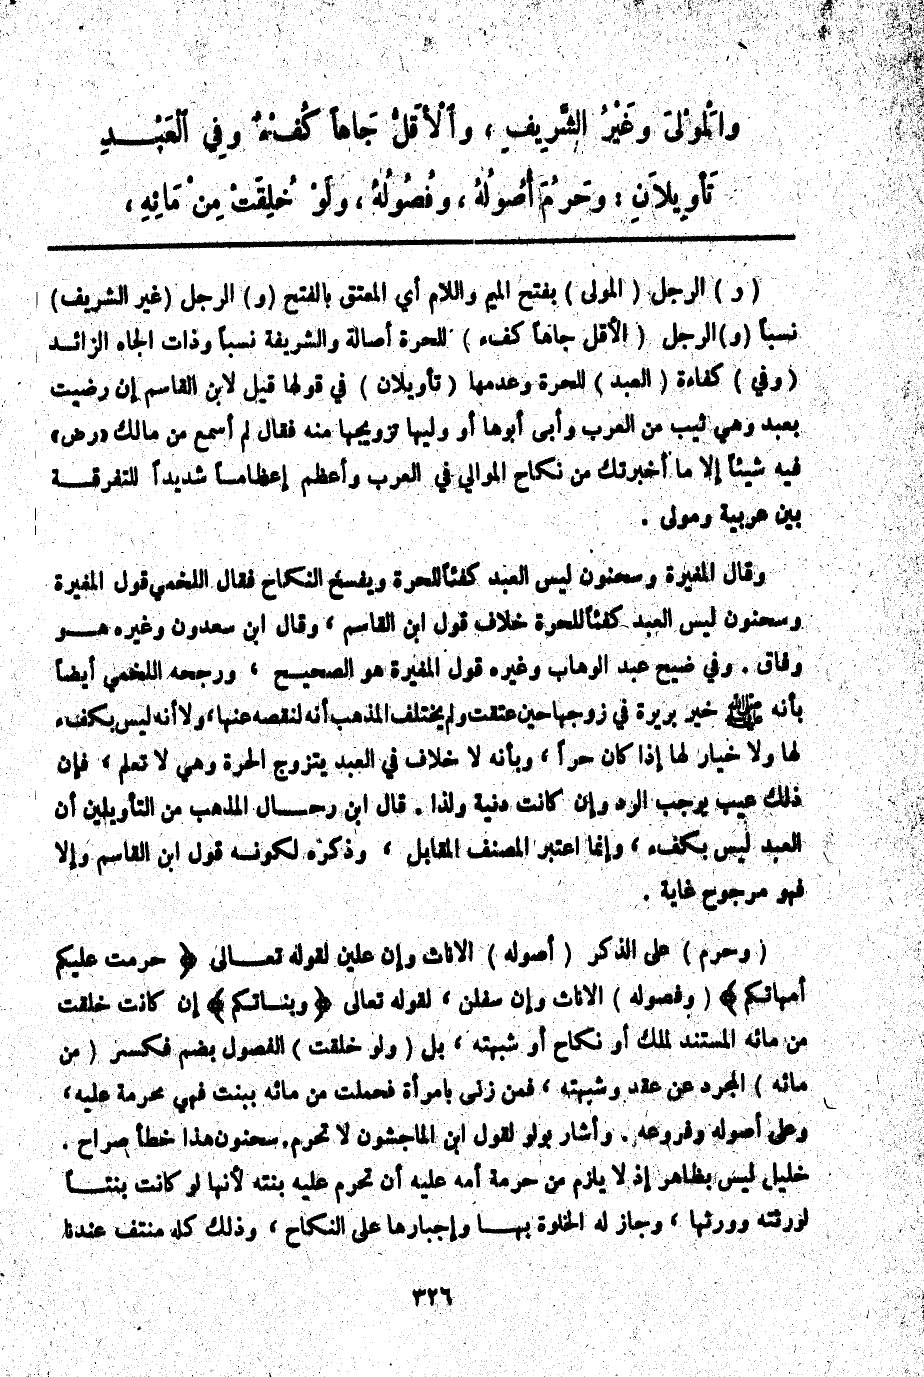 وَالْمَوْلَى وَغَيْرُ الشَّرِيفِ ، وَٱلْأَقَلُّ جَاهاً كُفْءٌ وَفِي ٱلْعَبْـــدِ
تَأْوِيلاَنِ : وَحَرُمَ أُصُولُهُ ، وَفُصُولُهُ ، وَلَوْ خُلِقَتْ مِنْ مَائِهِ ،
( و ) الرجل ( المولى ) بفتح الميم واللام أي المعتق بالفتح (و) الرجل (غير الشريف)
نسباً (و)الرجل ( الأقل جاهاً كفء ) للحرة أصالة والشريفة نسباً وذات الجاه الزائـد
( وفي ) كفاءة ( العبد ) للحرة وعدمها ( تأويلان ) في قولها قيل لابن القاسم إن رضيت
بعبد وهي ثيب من العرب وأبى أبوها أو وليها تزويجها منه فقال لم أسمع من مالك «رض»
فيه شيئاً إلا ما أخبرتك من نكاح الموالي في العرب وأعظم إعظامـاً شديداً للتفرقـــة
بين عربية ومولى .
وقال المغيرة وسحنون ليس العبد كفئاً للحرة ويفسخ النكاح فقال اللخمي قول المغيرة
وسحنون ليس العبد كفئاً للحرة خلاف قول ابن القاسم ، وقال ابن سعدون وغيره هـــو
وفاق . وفي ضيح عبد الوهاب وغيره قول المغيرة هو الصحيـح ، ورجحه اللخمي أيضاً
بأنه ﷺ خير بريرة في زوجها حين عتقت ولم يختلف المذهب أنه لنقصه عنها ، ولا أنه ليس بكفء
لها ولا خيار لها إذا كان حراً ، وبأنه لا خلاف في العبد يتزوج الحرة وهي لا تعلم ، فإن
ذلك عيب يوجب الرد وإن كانت دنية ولذا . قال ابن رحـــال المذهب من التأويلين أن
العبد ليس بكفء ، وإنما اعتبر المصنف المقابل ، وذكره لكونـه قول ابن القاسم وإلا
فهو مرجوح غاية .
( وحرم ) على الذكر ( أصوله ) الاناث وإن علين لقوله تعـــالى ﴿ حرمت عليكم
أمهاتكم ﴾ ( وفصوله ) الاناث وإن سفلن ، لقوله تعالى ﴿ وبنـاتكم ﴾ إن كانت خلقت
من مائه المستند لملك أو نكاح أو شبهته ، بل ( ولو خلقت ) الفصول بضم فكسر ( من
مائه ) المجرد عن عقد وشبهته ، فمن زنى بامرأة فحملت من مائه ببنت فهي محرمة عليه ،
وعلى أصوله وفروعه . وأشار بولو لقول ابن الماجشون لا تحرم . سحنون هذا خطأ صراح .
خليل ليس بظاهر إذ لا يلزم من حرمة أمه عليه أن تحرم عليه بنته لأنها لو كانت بنتـــاً
لورثته وورثها ، وجاز له الخلوة بهـــا وإجبارها على النكاح ، وذلك كله منتف عندنا
٣٢٦